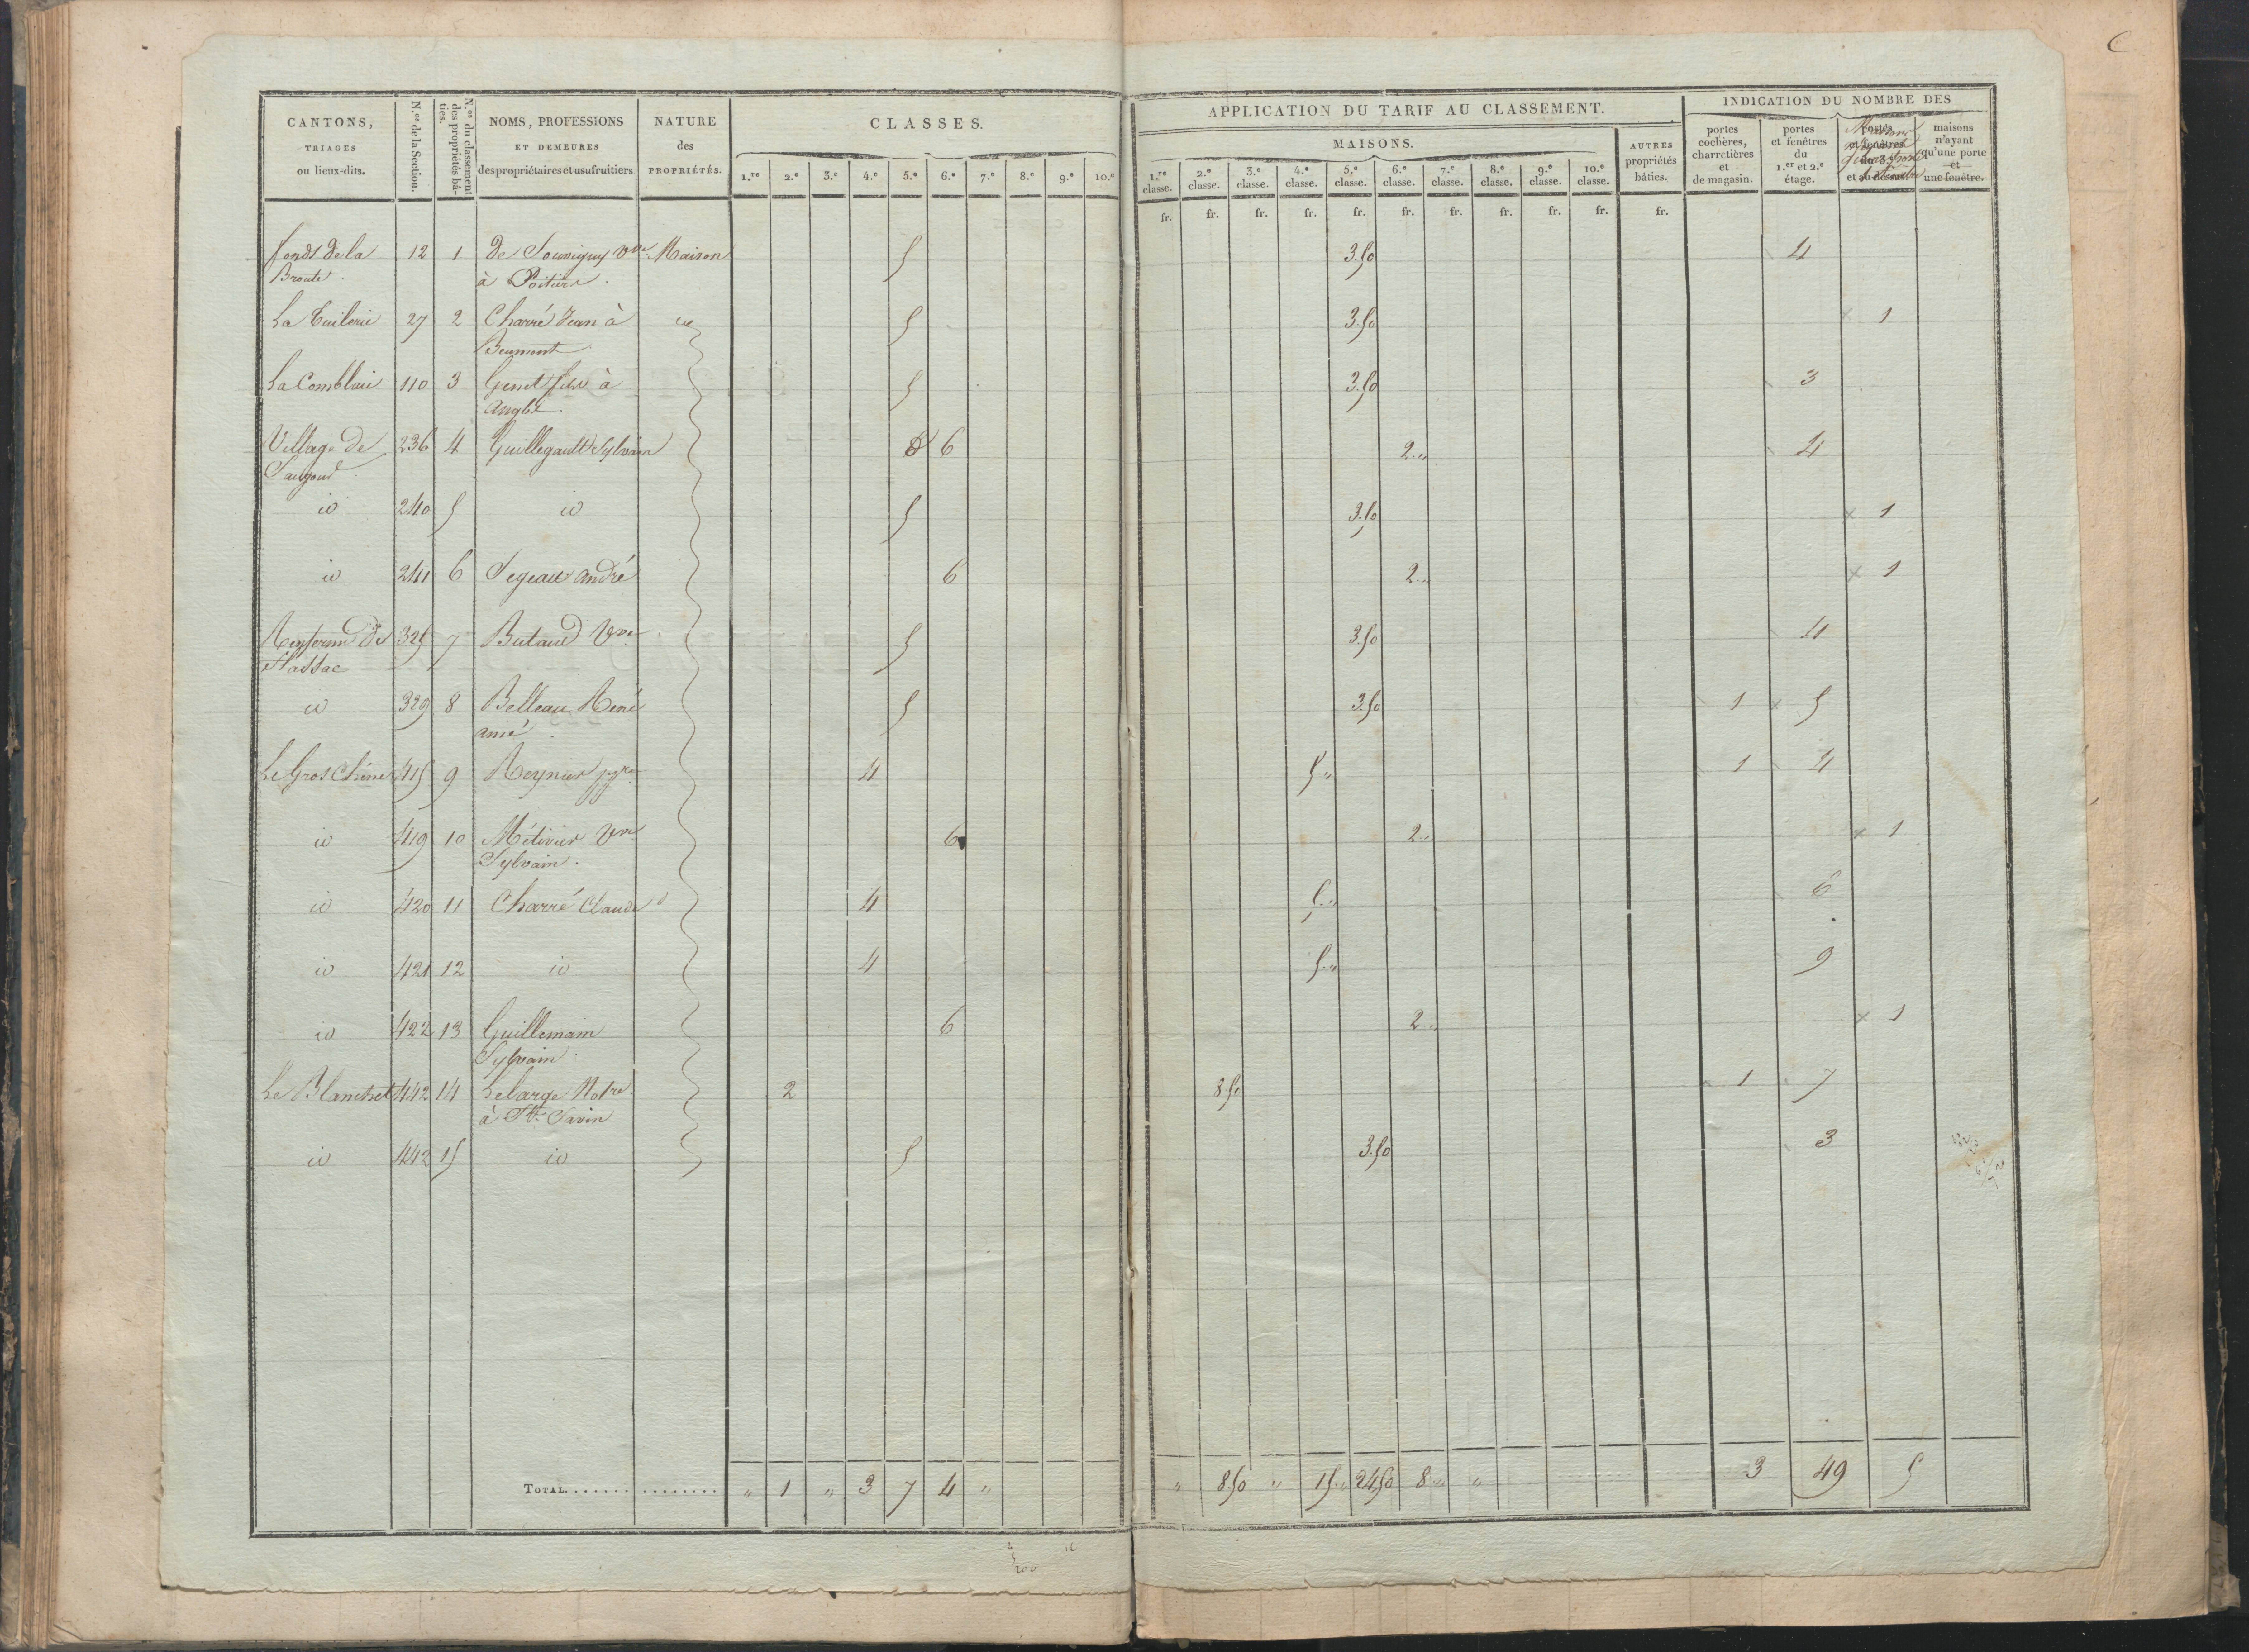 C
CANTONS, TRIAGES ou lieux-dits.
N.os de la Section.
N.os du classement des propriétés bâties.
NOMS, PROFESSIONS ET DEMEURES des propriétaires et usufruitiers
NATURE des PROPRIÉTÉS.
CLASSES.
1.re 2.e 3.e 4.e 5.e 6.e 7.e 8.e 9.e 10.e
APPLICATION DU TARIF AU CLASSEMENT.
MAISONS.
1.re classe. 2.e classe. 3.e classe. 4.e classe. 5.e classe. 6.e classe. 7.e classe. 8.e classe. 9.e classe. 10.e classe.
AUTRES propriétés bâties.
INDICATION DU NOMBRE DES
portes cochères, charretières et de magasin.
portes et fenêtres du 1.er et 2.e étage.
maisons n'ayant qu'une porte et une fenêtre.
fr. fr. fr. fr. fr. fr. fr. fr. fr. fr. fr.
fonds de la 12 1 De Souvigny Vve Maison 5 3.50 4
Broute à Poitiers.
La Tuilerie 27 2 Charré Jean à 5 3.50 1
Beumont
La Comblaie 110 3 Genet fils à 5 3.50 3
Angles.
Village de 236 4 Guillegault Sylvain 6 2.,, 4
id 240 5 id 5 3.50 1
id 241 6 Segeau André 6 2.,, 1
325 7 Butaud Vve 5 3.50 4
id 329 8 Belleau René 5 3.50 1 5
ainé
Le Gros Chêne 415 9 Reynier 4 5.,, 1 4
id 419 10 Métivier Vve 6 2.,, 1
Sylvain.
id 420 11 Charré Claude 4 5.,, 6
id 421 12 id 4 5.,, 9
id 422 13 Guillemain 6 2.,, 1
Sylvain
Le Blanchet 442 14 Lelarge Notre 2 8.50 1 7
à St. Savin
id 442 15 id 5 3.50 3
TOTAL ,, 1 ,, 3 7 4 ,, ,, 8.50 ,, 15.,, 24.50 8 ,, ,, 3 49 5